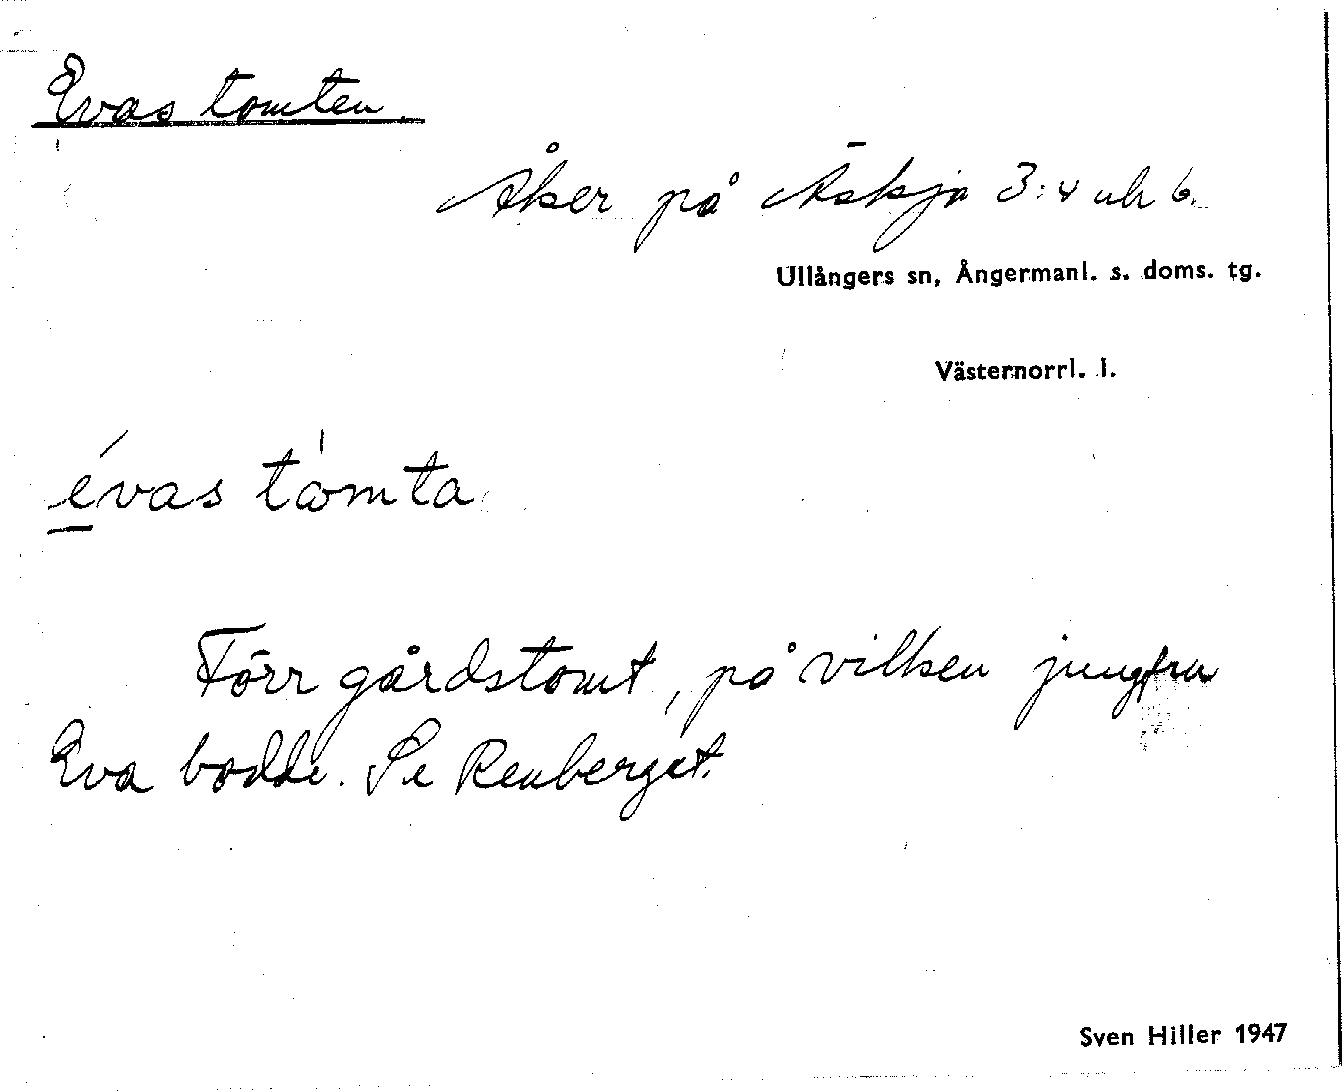 Evas tomten.
Åker på Äskja 3:4 uh 6.
Ullångers sn, Ångermanl. s. doms. tg.
Västernorrl. l.
évas tòmta
Förr gårdstomt, på vilken jungfru
Eva bodde. Se Renberget.
Sven Hiller 1947